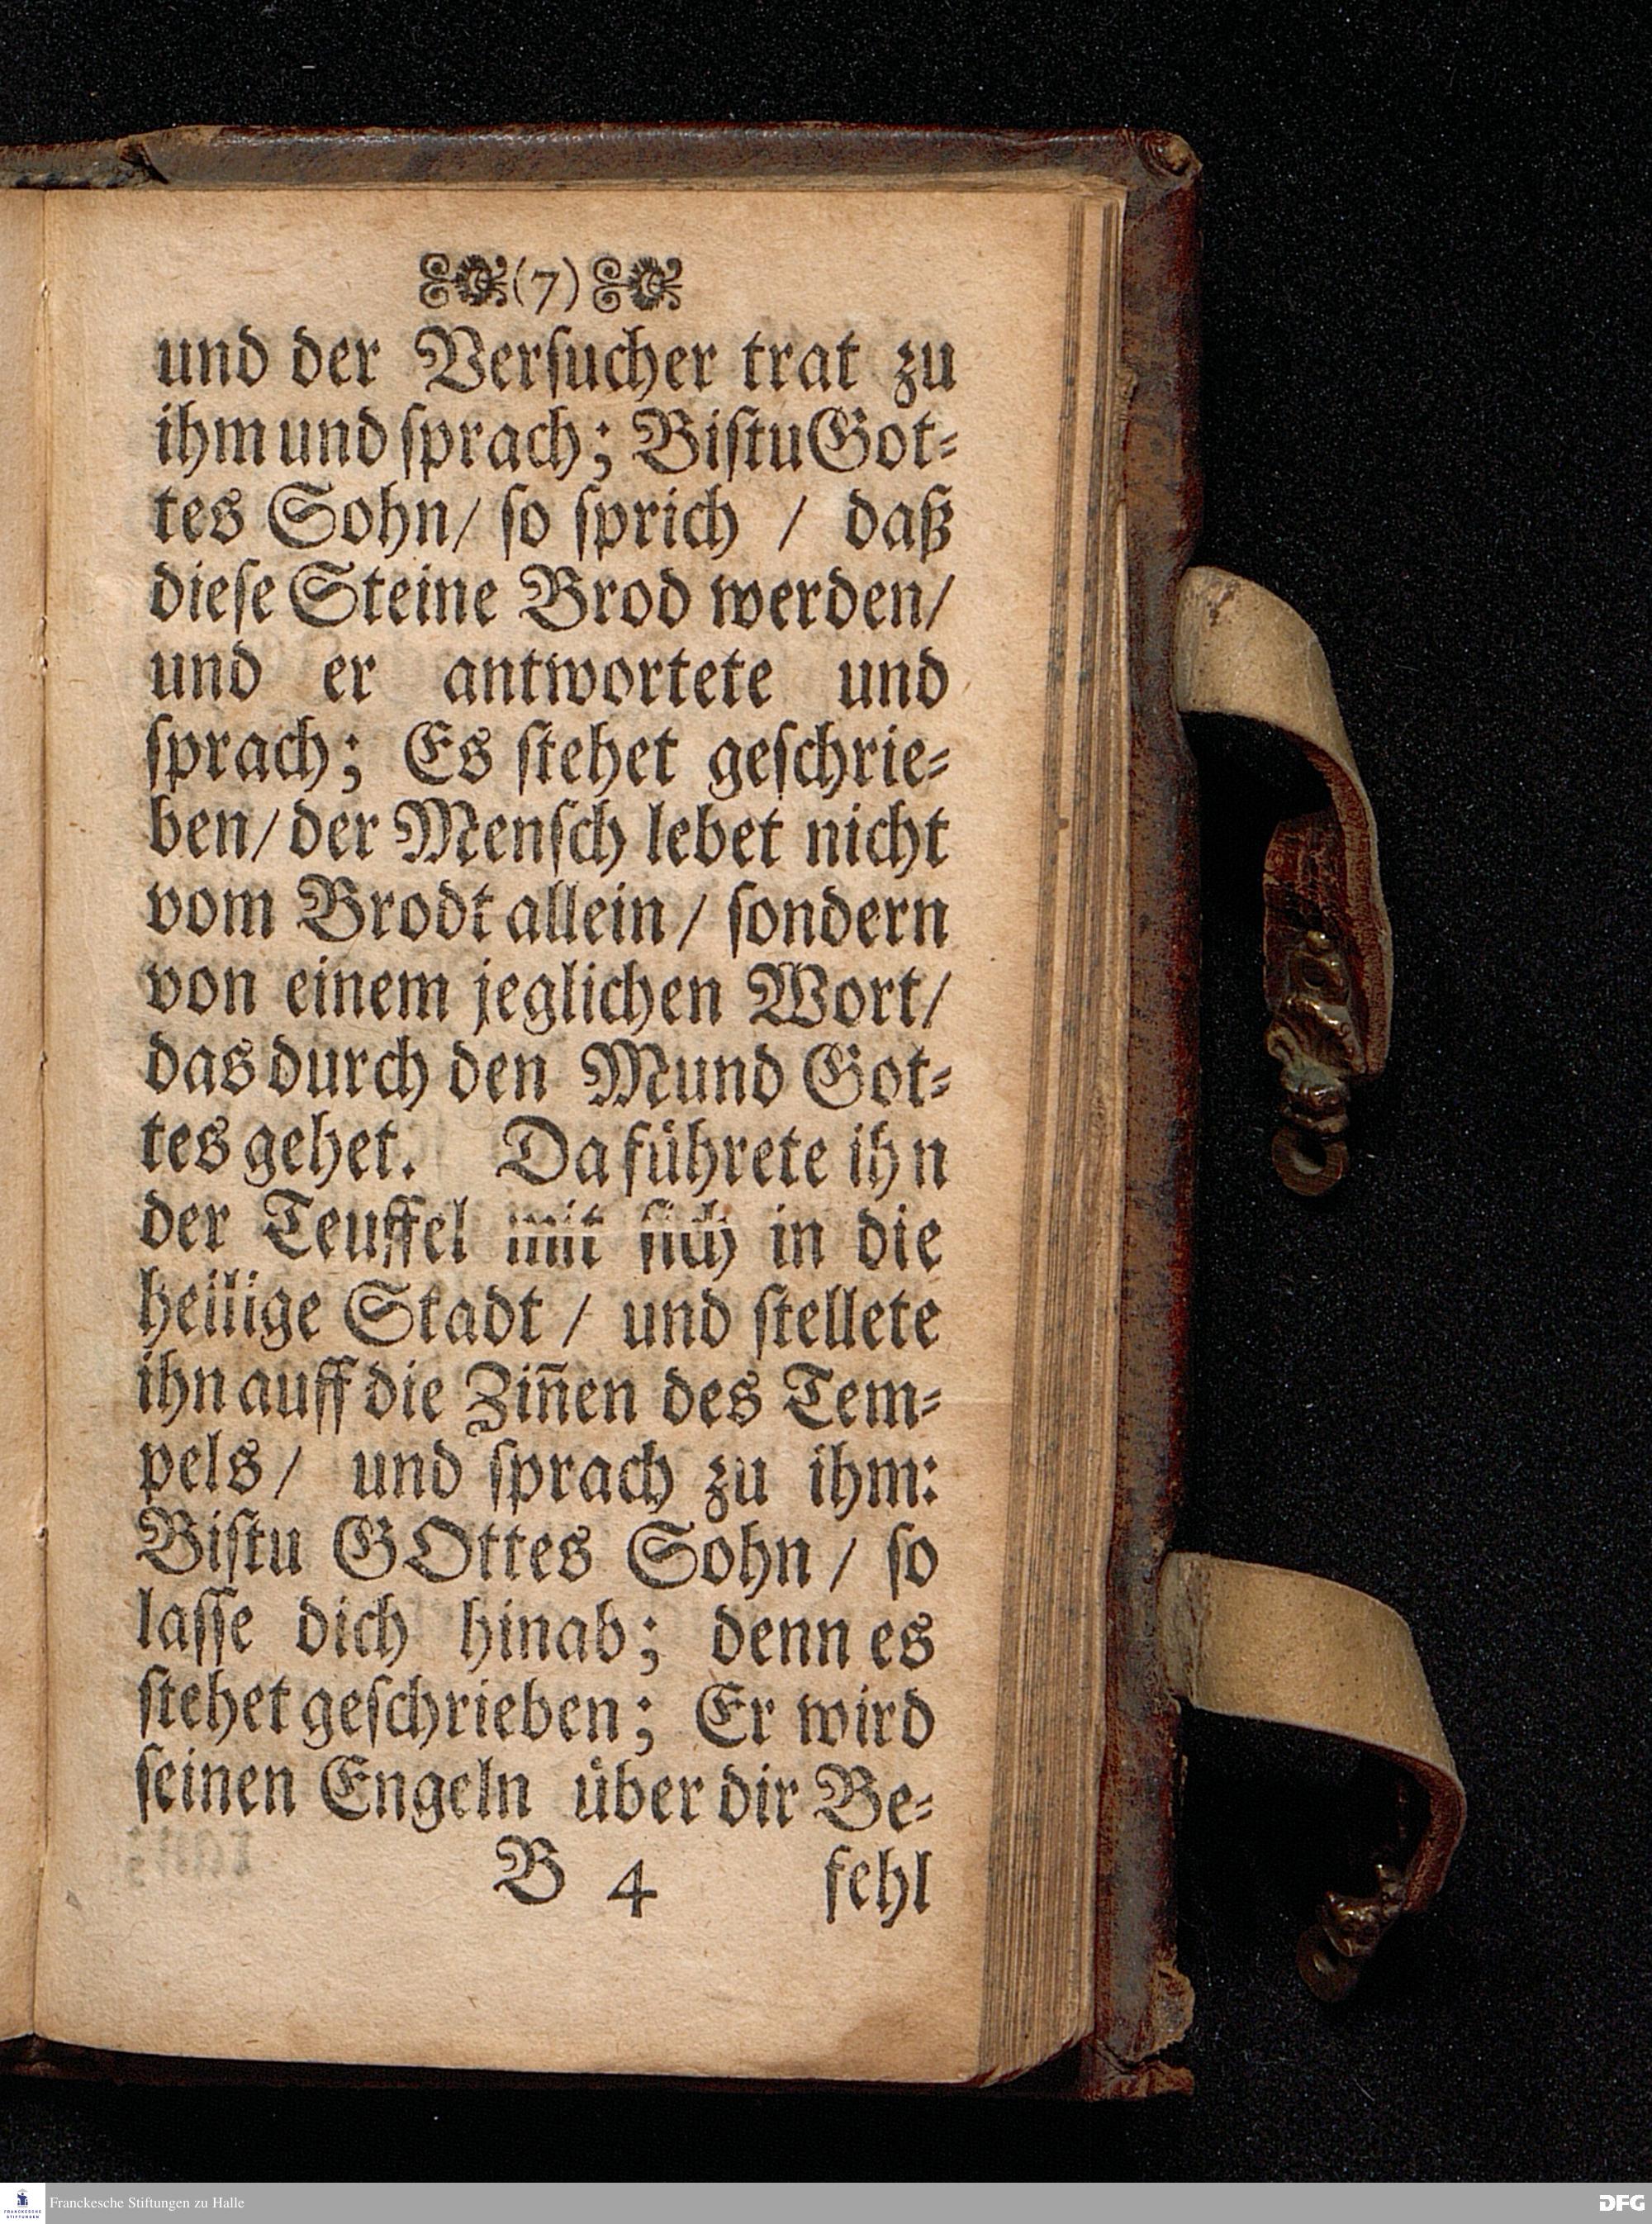 (7)
und der Verſucher trat zu
ihm und ſprach; Biſtu Got⸗
tes Sohn/ ſo ſprich / daß
dieſe Steine Brod werden/
und er antwortete und
ſprach; Es ſtehet geſchrie⸗
ben/ der Menſch lebet nicht
vom Brodt allein / ſondern
von einem jeglichen Wort/
das durch den Mund Got⸗
tes gehet. Da führete ihn
der Teuffel mit ſich in die
heilige Stadt / und ſtellete
ihn auff die Zin̄en des Tem⸗
pels / und ſprach zu ihm:
Biſtu GOttes Sohn / ſo
laſſe dich hinab; denn es
ſtehet geſchrieben; Er wird
ſeinen Engeln über dir Be⸗
B 4 fehl
Franckesche Stiftungen zu Halle
DFG